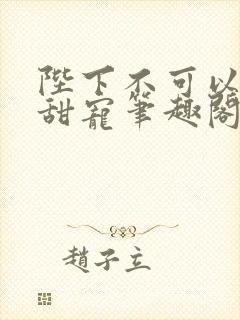 陛下不可以
甜寵筆趣閣
趙子立